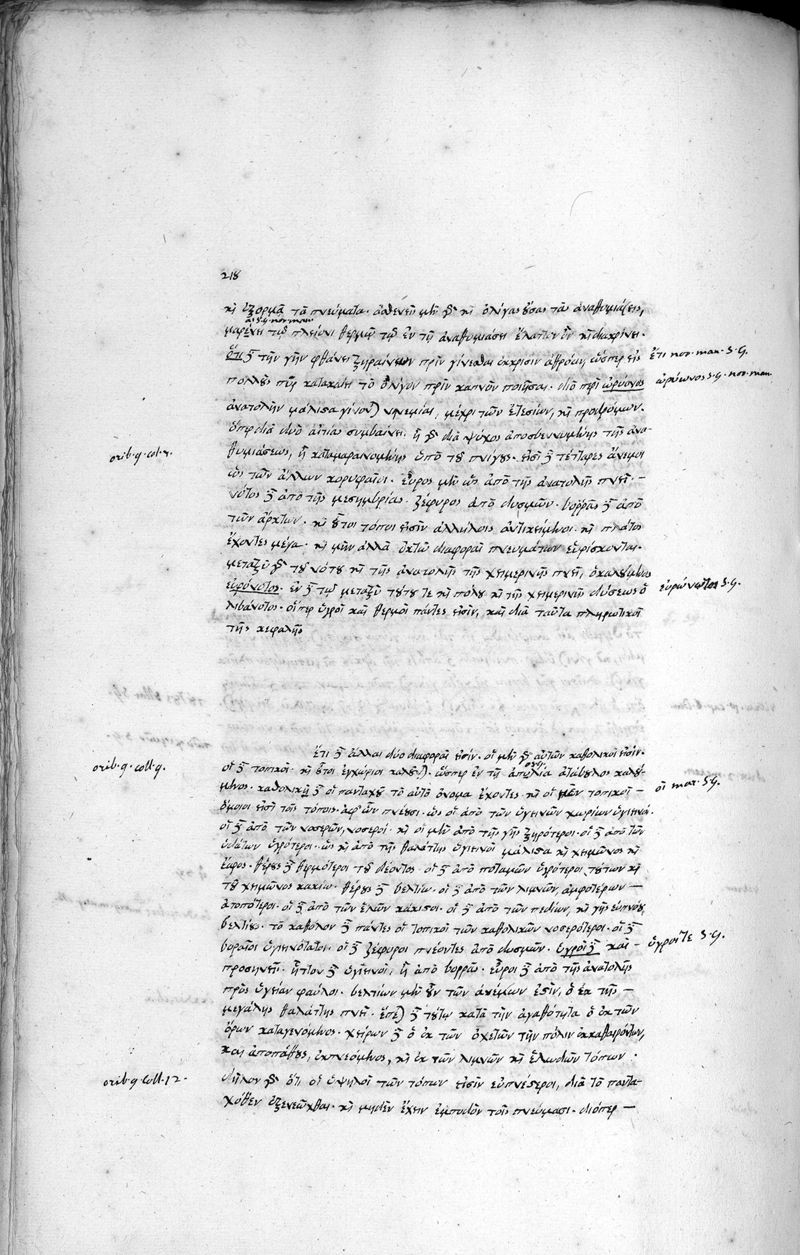 218
καὶ ἐξορμᾷ τὰ πνεύματα. ἀσθενεῖ μὲν γὰρ καὶ ὀλίγας οὔσας τὰς ἀναθυμιάσεις,
μαραίνει τῷ πλείονι θερμῷ τῷ ἐν τῇ ἀναθυμιάσει ἔλαττον ὂν καὶ διακρίνει.
ἔτι δὲ τὴν γῆν φθάνει ξηραίνειν πρὶν γίνεσθαι ἔκκρισιν ἀθρόαν, ὥσπερ εἰς
ἔτι nor. man. S.G.
πολλὺ πῦρ κατακαίει τὸ ὀλίγον πρὶν καπνὸν ποιῆσαι. διὸ περὶ ὠρίωνος
ὠρίωνος S.G. nor. man.
ἀνατολὴν μάλιστα γίνονται νηνεμίαι, μέχρι τῶν ἐτεσίων, καὶ προδρόμων.
ὅπερ διὰ δύο αἰτίας συμβαίνει. ἢ γὰρ διὰ ψύχος ἀποσβεννυμένης τῆς ἀνα-
orib. 9. col. 7.
θυμιάσεως, ἢ καταμαραινομένης ὑπὸ τοῦ πνίγους. εἰσὶ δὲ τέτταρες ἄνεμοι
ὡς τῶν ἄλλων κορυφαῖοι. εὖρος μὲν ὡς ἀπὸ τῆς ἀνατολῆς πνεῖ. —
νότος δὲ ἀπὸ τῆς μεσημβρίας. ζέφυρος ἀπὸ δυσμῶν. βορρᾶς δὲ ἀπὸ
τῶν ἄρκτων. καὶ οὗτοι τόποι εἰσὶν ἀλλήλοις ἀντικείμενοι. καὶ πλάτος
ἔχοντες μέγα. καὶ μὴν ἀλλὰ ὀκτὼ διαφοραὶ πνευμάτων εὑρίσκονται.
μεταξὺ γὰρ τοῦ νότου καὶ τῆς ἀνατολῆς τῆς χειμερινῆς πνεῖ, ὁ καλούμενος
εὐρόνοτος. ἐν δὲ τῷ μεταξὺ τούτου τε καὶ πόλου καὶ τῆς χειμερινῆς δύσεως ὁ
εὐρώνοτος S.G.
λιβάνοτος. οἵπερ ὑγροὶ καὶ θερμοὶ πάντες εἰσὶν, καὶ διὰ ταῦτα πληρωτικοὶ
τῆς κεφαλῆς
ἔτι δὲ ἄλλαι δύο διαφοραί εἰσιν. οἱ μὲν γὰρ αὐτῶν καθολικοί εἰσιν.
orib. 9. coll. 9.
οἱ δὲ τοπικοί. καὶ οὗτοι ἐγχώριοι καλοῦνται. ὥσπερ ἐν τῇ ἀπουλία ἀτάβυλος καλού-
μενος. καθολικοὶ δὲ οἱ πανταχοῦ τὸ αὐτὸ ὄνομα ἔχοντες. καὶ οἱ μὲν τοπικοὶ —
οἱ mar. S.G.
ὅμοιοί εἰσι τοῖς τόποις. ἀφ' ὧν πνέουσι. ὡς οἱ ἀπὸ τῶν ὑγιεινῶν χωρίων ὑγιεινοί.
οἱ δὲ ἀπὸ τῶν νοσερῶν, νοσεροί. καὶ οἱ μὲν ἀπὸ τῆς γῆς ξηρότεροι. οἱ δὲ ἀπὸ τῶν
ὑδάτων ὑγρότεροι. ὡς καὶ ἀπὸ τῆς θαλάττης ὑγιεινοὶ μάλιστα καὶ χειμῶνος καὶ
ἔαρος. θέρους δὲ θερμότεροι τοῦ δέοντος. οἱ δὲ ἀπὸ ποταμῶν ὑγρότεροι τούτων καὶ
τοῦ χειμῶνος κακίω. θέρους δὲ βελτίω. οἱ δὲ ἀπὸ τῶν λιμνῶν, ἀμφοτέρων —
ἀτοπότεροι. οἱ δὲ ἀπὸ τῶν ἑλῶν κάκιστοι. οἱ δὲ ἀπὸ τῶν πεδίων, καὶ γῆς εὔπνου,
βελτίω. τὸ καθόλου δὲ πάντες οἱ τοπικοὶ τῶν καθολικῶν νοσερότεροι. οἱ δὲ
βοραῖοι ὑγιεινότατοι. οἱ δὲ ζέφυροι πνέοντες ἀπὸ δυσμῶν. ὑγροὶ δὲ καὶ —
ὑγροί τε S.G.
προσηνεῖς. ἧττον δὲ ὑγιεινοί, ἢ ἀπὸ βορρᾶ. εὖροι δὲ ἀπὸ τῆς ἀνατολῆς
πρὸς ὑγείαν φαῦλοι. βελτίων μὲν οὖν τῶν ἀνέμων ἐστὶν, ὁ ἐκ τῆς —
μεγάλης θαλάττης πνεῖ. ἕπεται δὲ τούτῳ κατὰ τὴν ἀγαθότητα ὁ ἐκ τῶν
ὄρων καταγενόμενος. χείρων δὲ ὁ ἐκ τῶν ὀχετῶν τὴν πόλιν ἐκκαθαιρόντων,
καὶ ἀποπάτους, ἐκπνεόμενος, καὶ ἐκ τῶν λιμνῶν καὶ ἑλωδῶν τόπων:
orib. 9. coll. 12.
δῆλον γὰρ ὅτι οἱ ὑψηλοὶ τῶν τόπων εἰσὶν εὐπνέστεροι, διὰ τὸ παντα-
χόθεν ἐξενεῶχθαι. καὶ μηδὲν ἔχειν ἐμποδὼν τοῖς πνεύμασι. διόπερ —